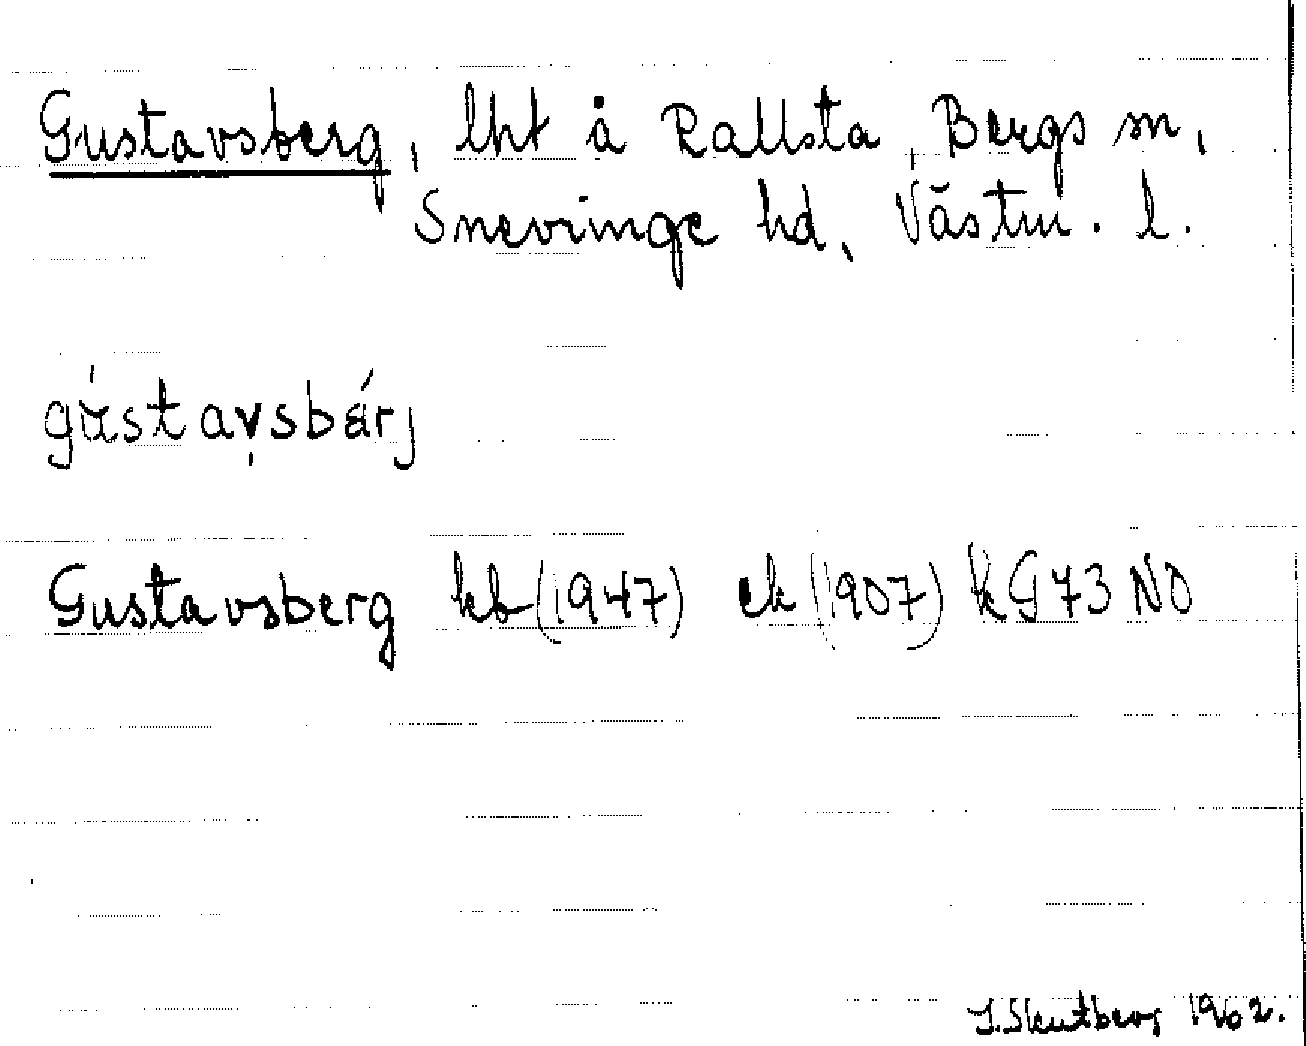 Gustavsberg, lht å Rallsta, Bergs sn,
Snevringe hd, Västm. l.
gústavsbärj
Gustavsberg kb (1947) ek (1907) kG73NO
J. Skutberg 1962.